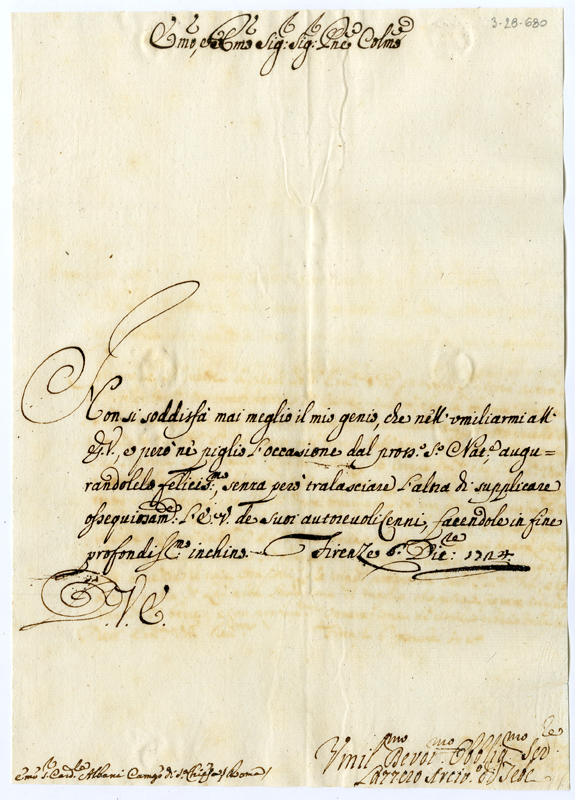 3-28-680
Emo, e Rmo Sig: Sig: Pne Colmo
Non si soddisfà mai meglio il mio genio, che nell' umiliarmi all'
E.V., e però nè piglio l'occasione dal pross.o S.o Nat.e augu=
randolelo feliciss.mo, senza però tralasciare l'altra di supplicare
ossequiosam.te l'E.V. de suoi autorevoli Cenni, facendole in fine
profondiss.mo inchino. Firenze 6. Dic.re: 1724.
D. V. E.
Emo S. Card.le Albani Camgo di S. Chiesa / Roma /
Umil.mo Devot.mo Obblig.mo Ser.e